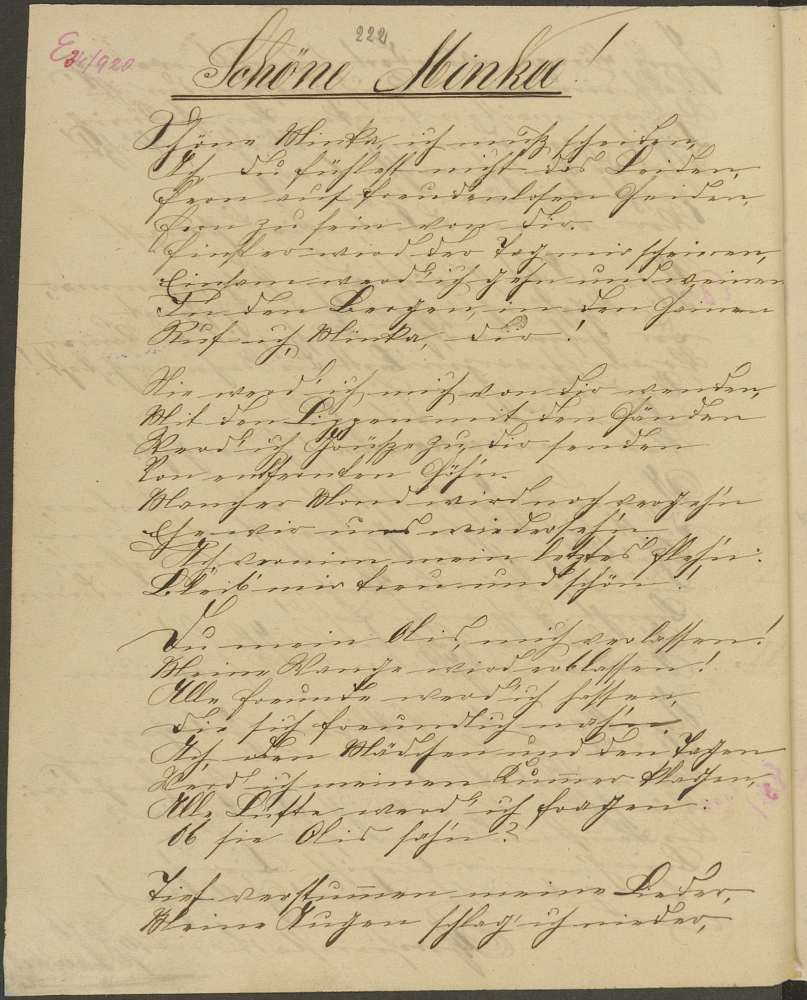 222
E 34/920
Schöne Minka!
Schöne Minka, ich muß scheiden,
Ach du fühlest nicht das Leiden,
Fern auf freudenlosen Heiden,
Fern zu sein von dir.
Finster wird der Tag mir scheinen,
Einsam werd' ich gehn und weinen
In den Bergen, in den Hainen
Ruf ich, Minka, dir!
Nie werd' ich mich von dir wenden,
Mit den Lippen mit den Händen
Werd' ich Grüße zu dir senden
Von entfernten Höh'n.
Mancher Mond wird noch vergeh'n
Ehe wir uns wiederseh'n
Ach, vernim mein letztes Fleh'n:
Bleib' mir treu und schön!
Du mein Olis, mich verlassen!
Meine Wange wird erblassen!
Alle Freunde werd' ich hassen,
Die sich freundlich nah'n
Ach, den Mädchen und den Tagen
Werd' ich meinen Kummer klagen,
Alle Lüfte werd' ich fragen
Ob sie Olis sah'n?
Tief verstummen meine Lieder,
Meine Augen schlag' ich nieder,